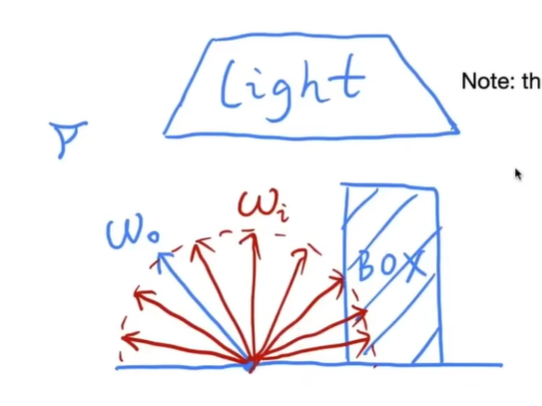 light
Note: th
ωi
ωo
BOX